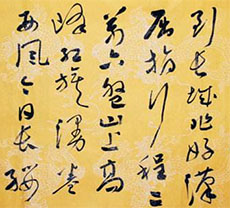 到長城非好漢
屈指行程二
萬六盤山上高
峰紅旗漫卷
西風今日長纓